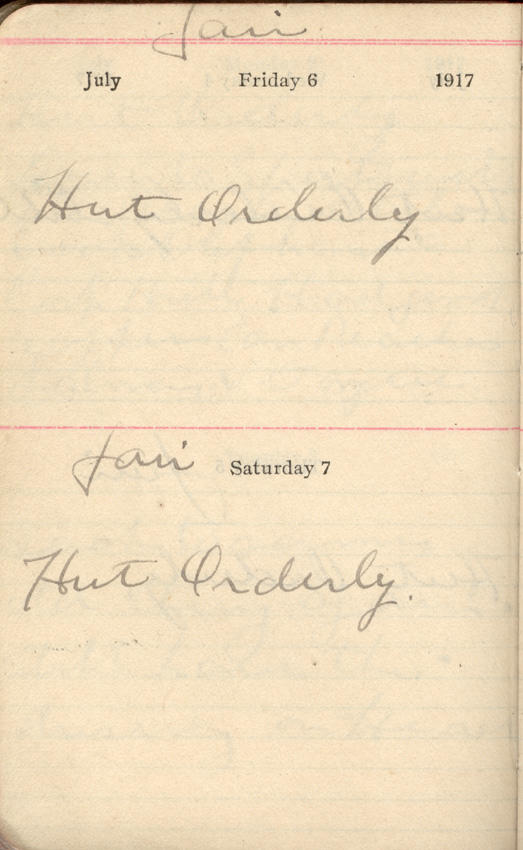 Fair
July Friday 6 1917
Hut Orderly
Fair Saturday 7
Hut Orderly.